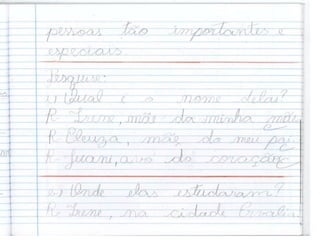 pessoas tão importantes e
especiais.
Pesquise:
1) Qual é o nome delas?
R- Irene, mãe da minha mãe
R- Cleuza, mãe do meu pai
R- Juani, avó do coração
2) Onde elas estudaram?
R- Irene, na cidade